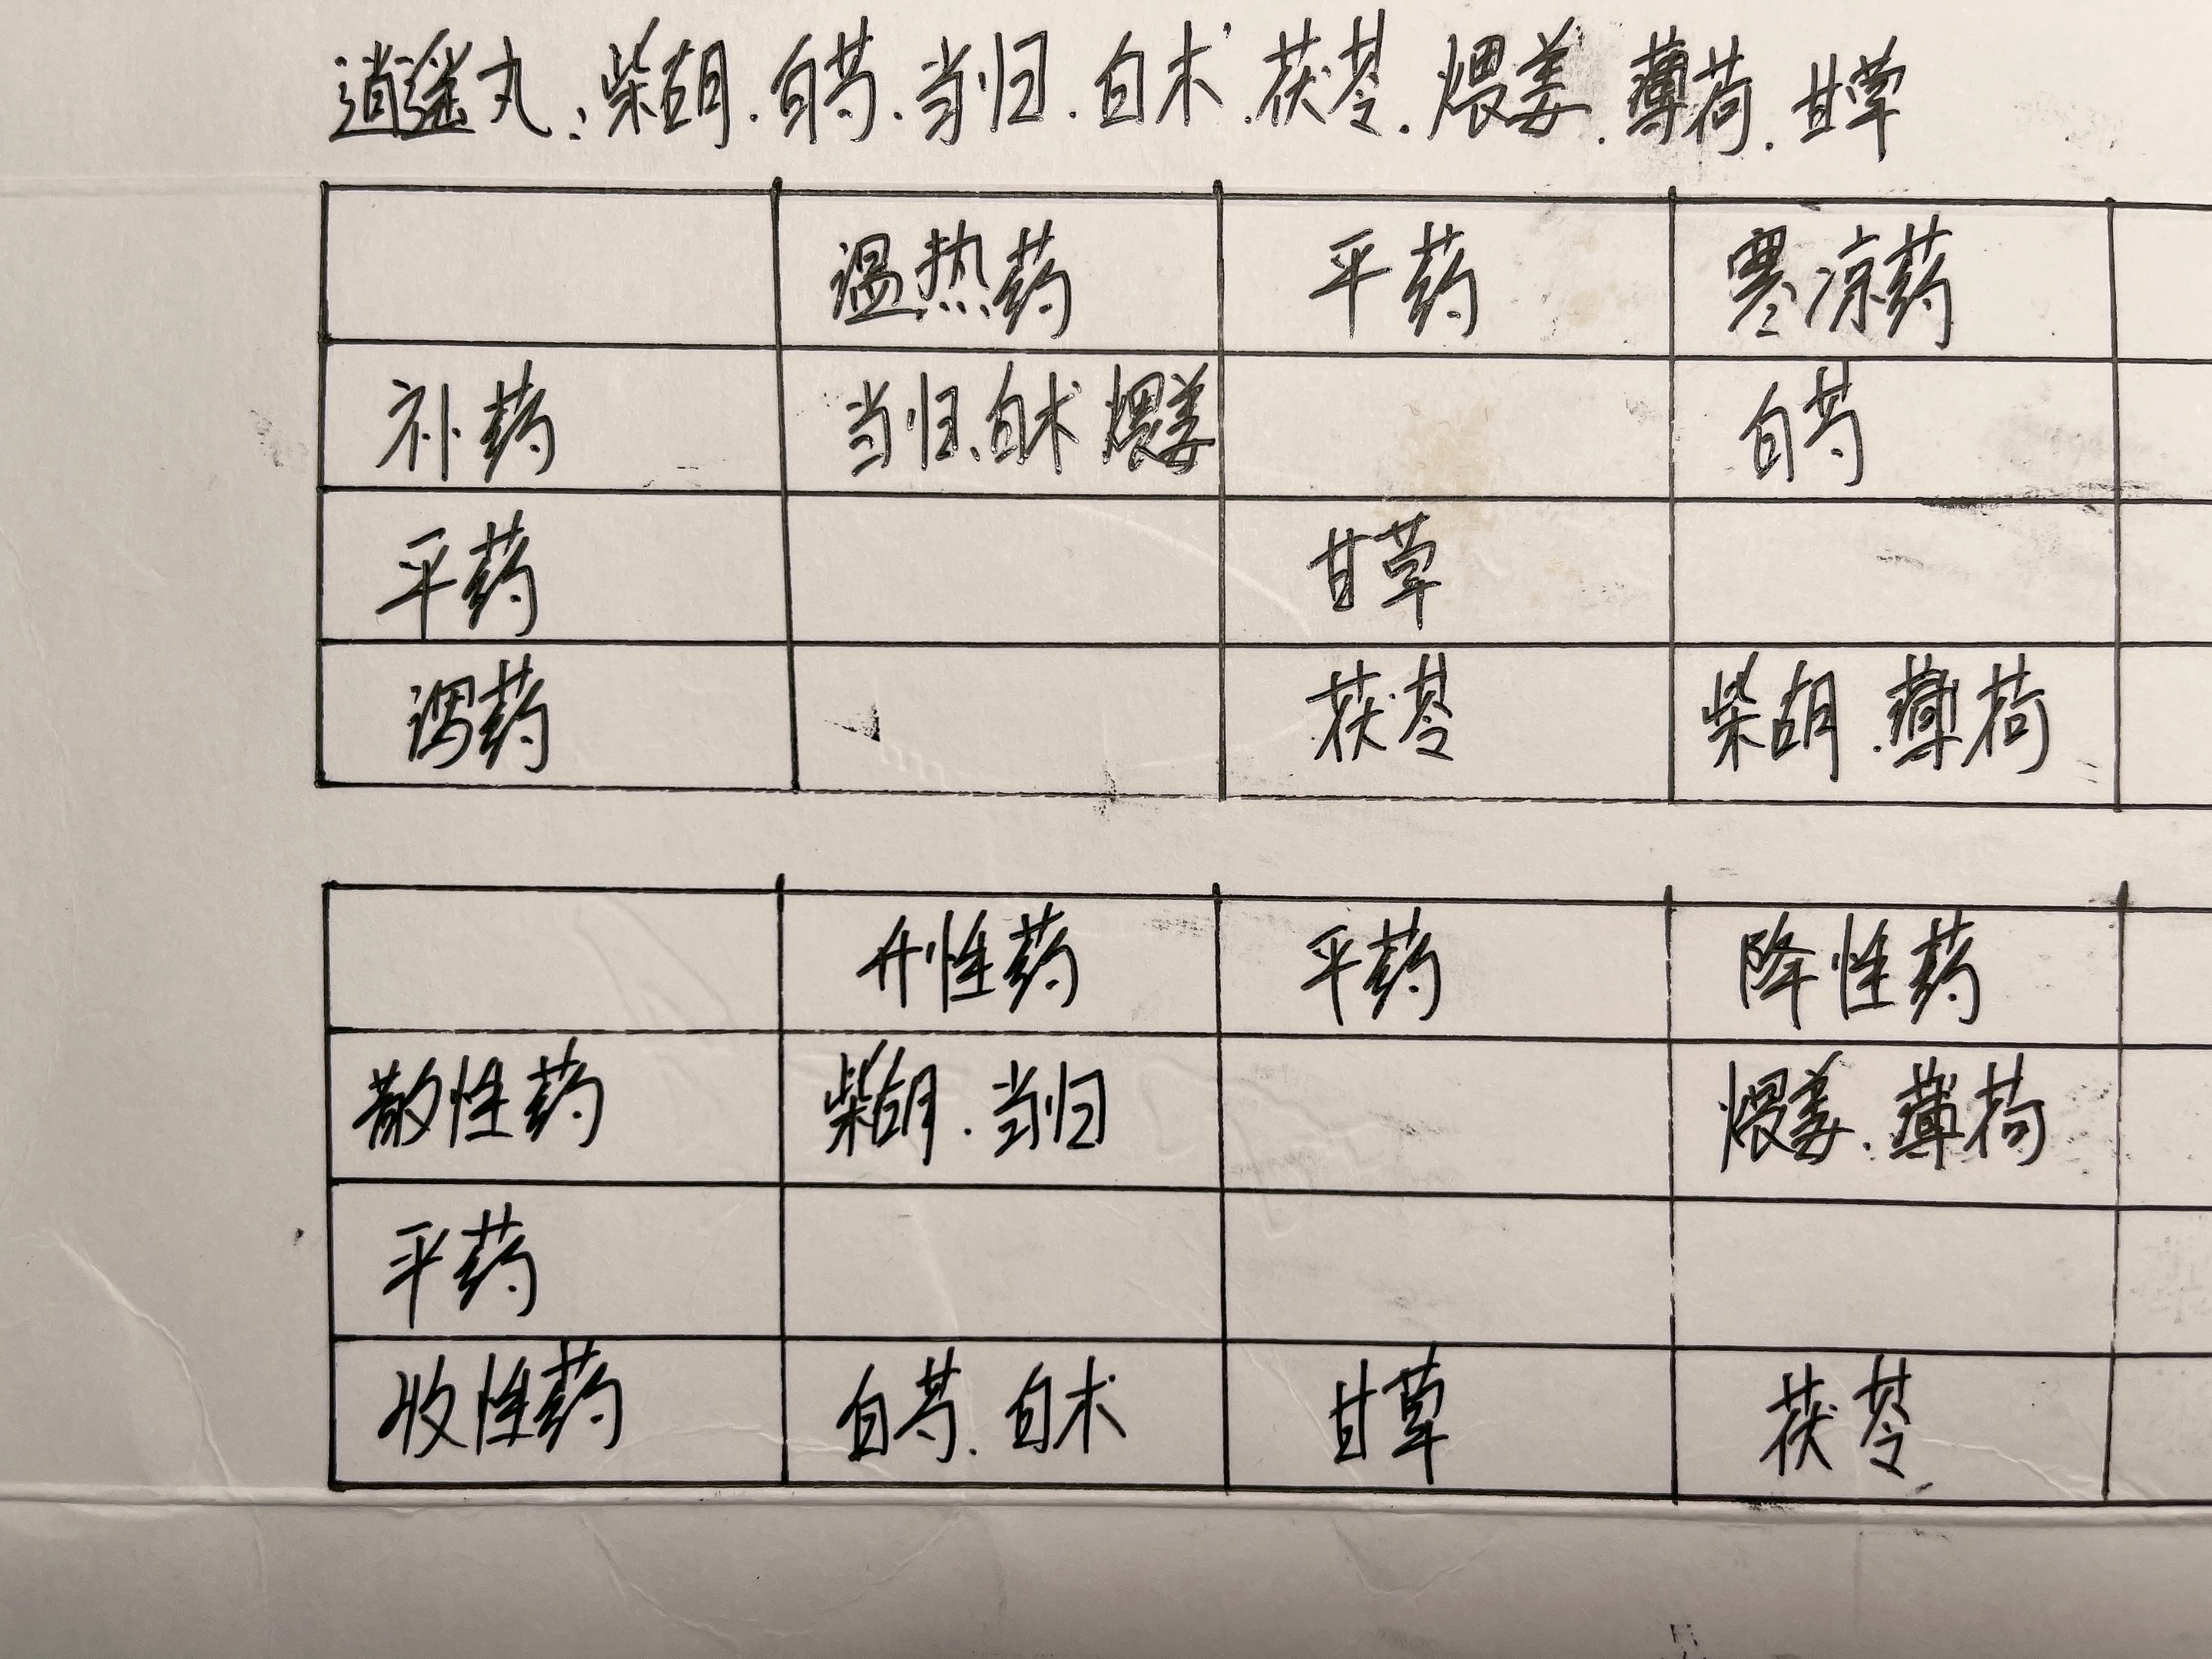 逍遥丸:柴胡.白芍.当归.白术.茯苓.煨姜.薄荷.甘草
温热药 平药 寒凉药
补药 当归.白术 煨姜 白芍
平药 甘草
泻药 茯苓 柴胡.薄荷
升性药 平药 降性药
散性药 柴胡.当归 煨姜.薄荷
平药
收性药 白芍.白术 甘草 茯苓